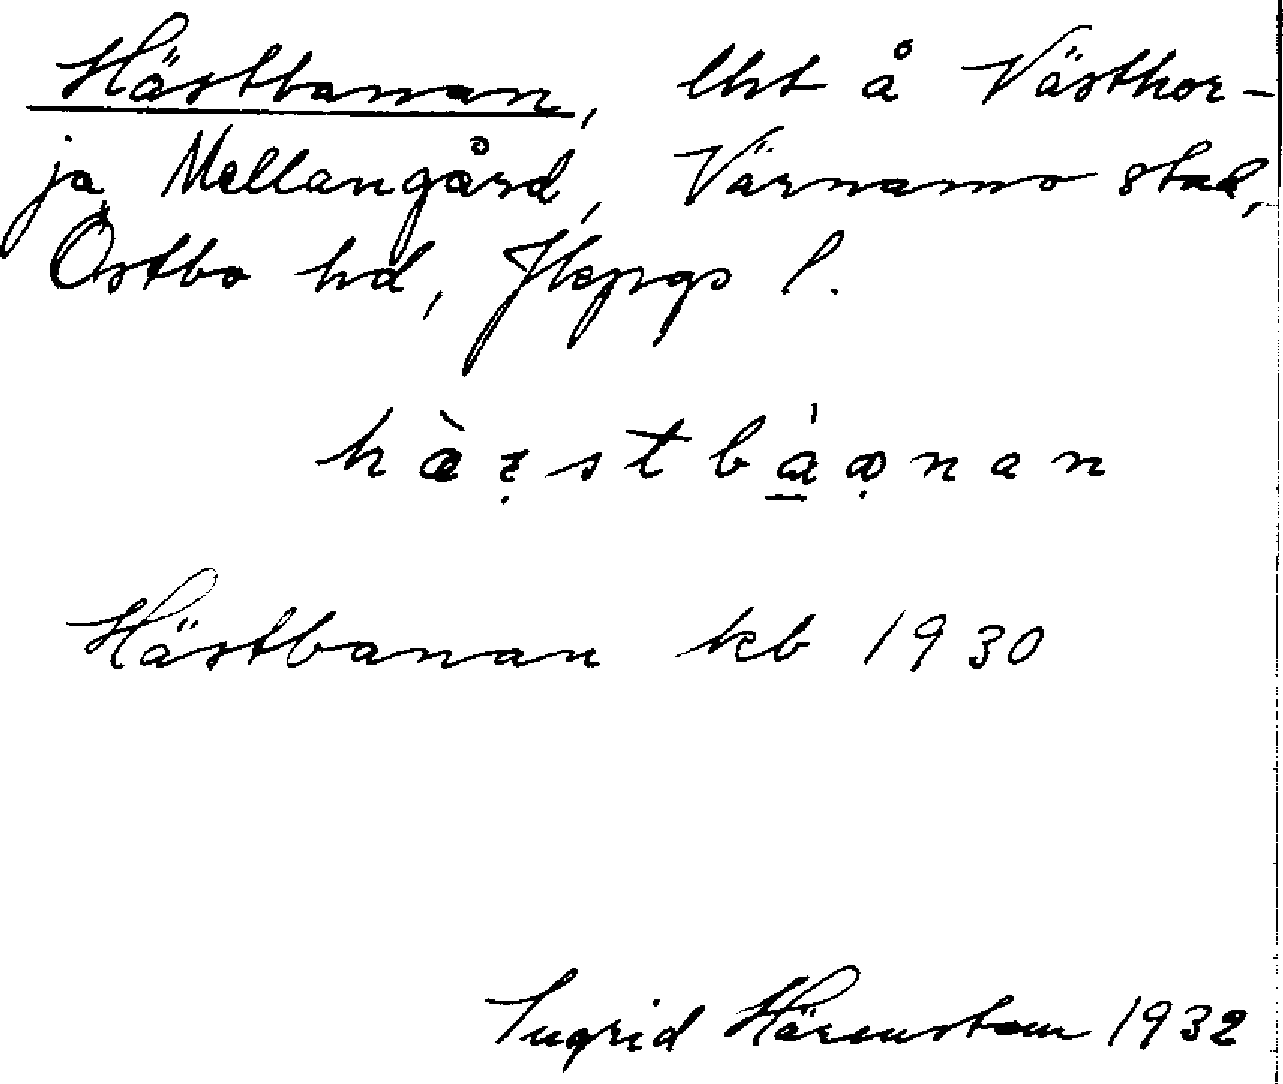 Hästbanan, lht å Västhor-
ja Mellangård, Värnamo stad,
Östbo hd, Jkpgs l.
hästbanan
Hästbanan kb 1930
Ingrid Härenstam 1932